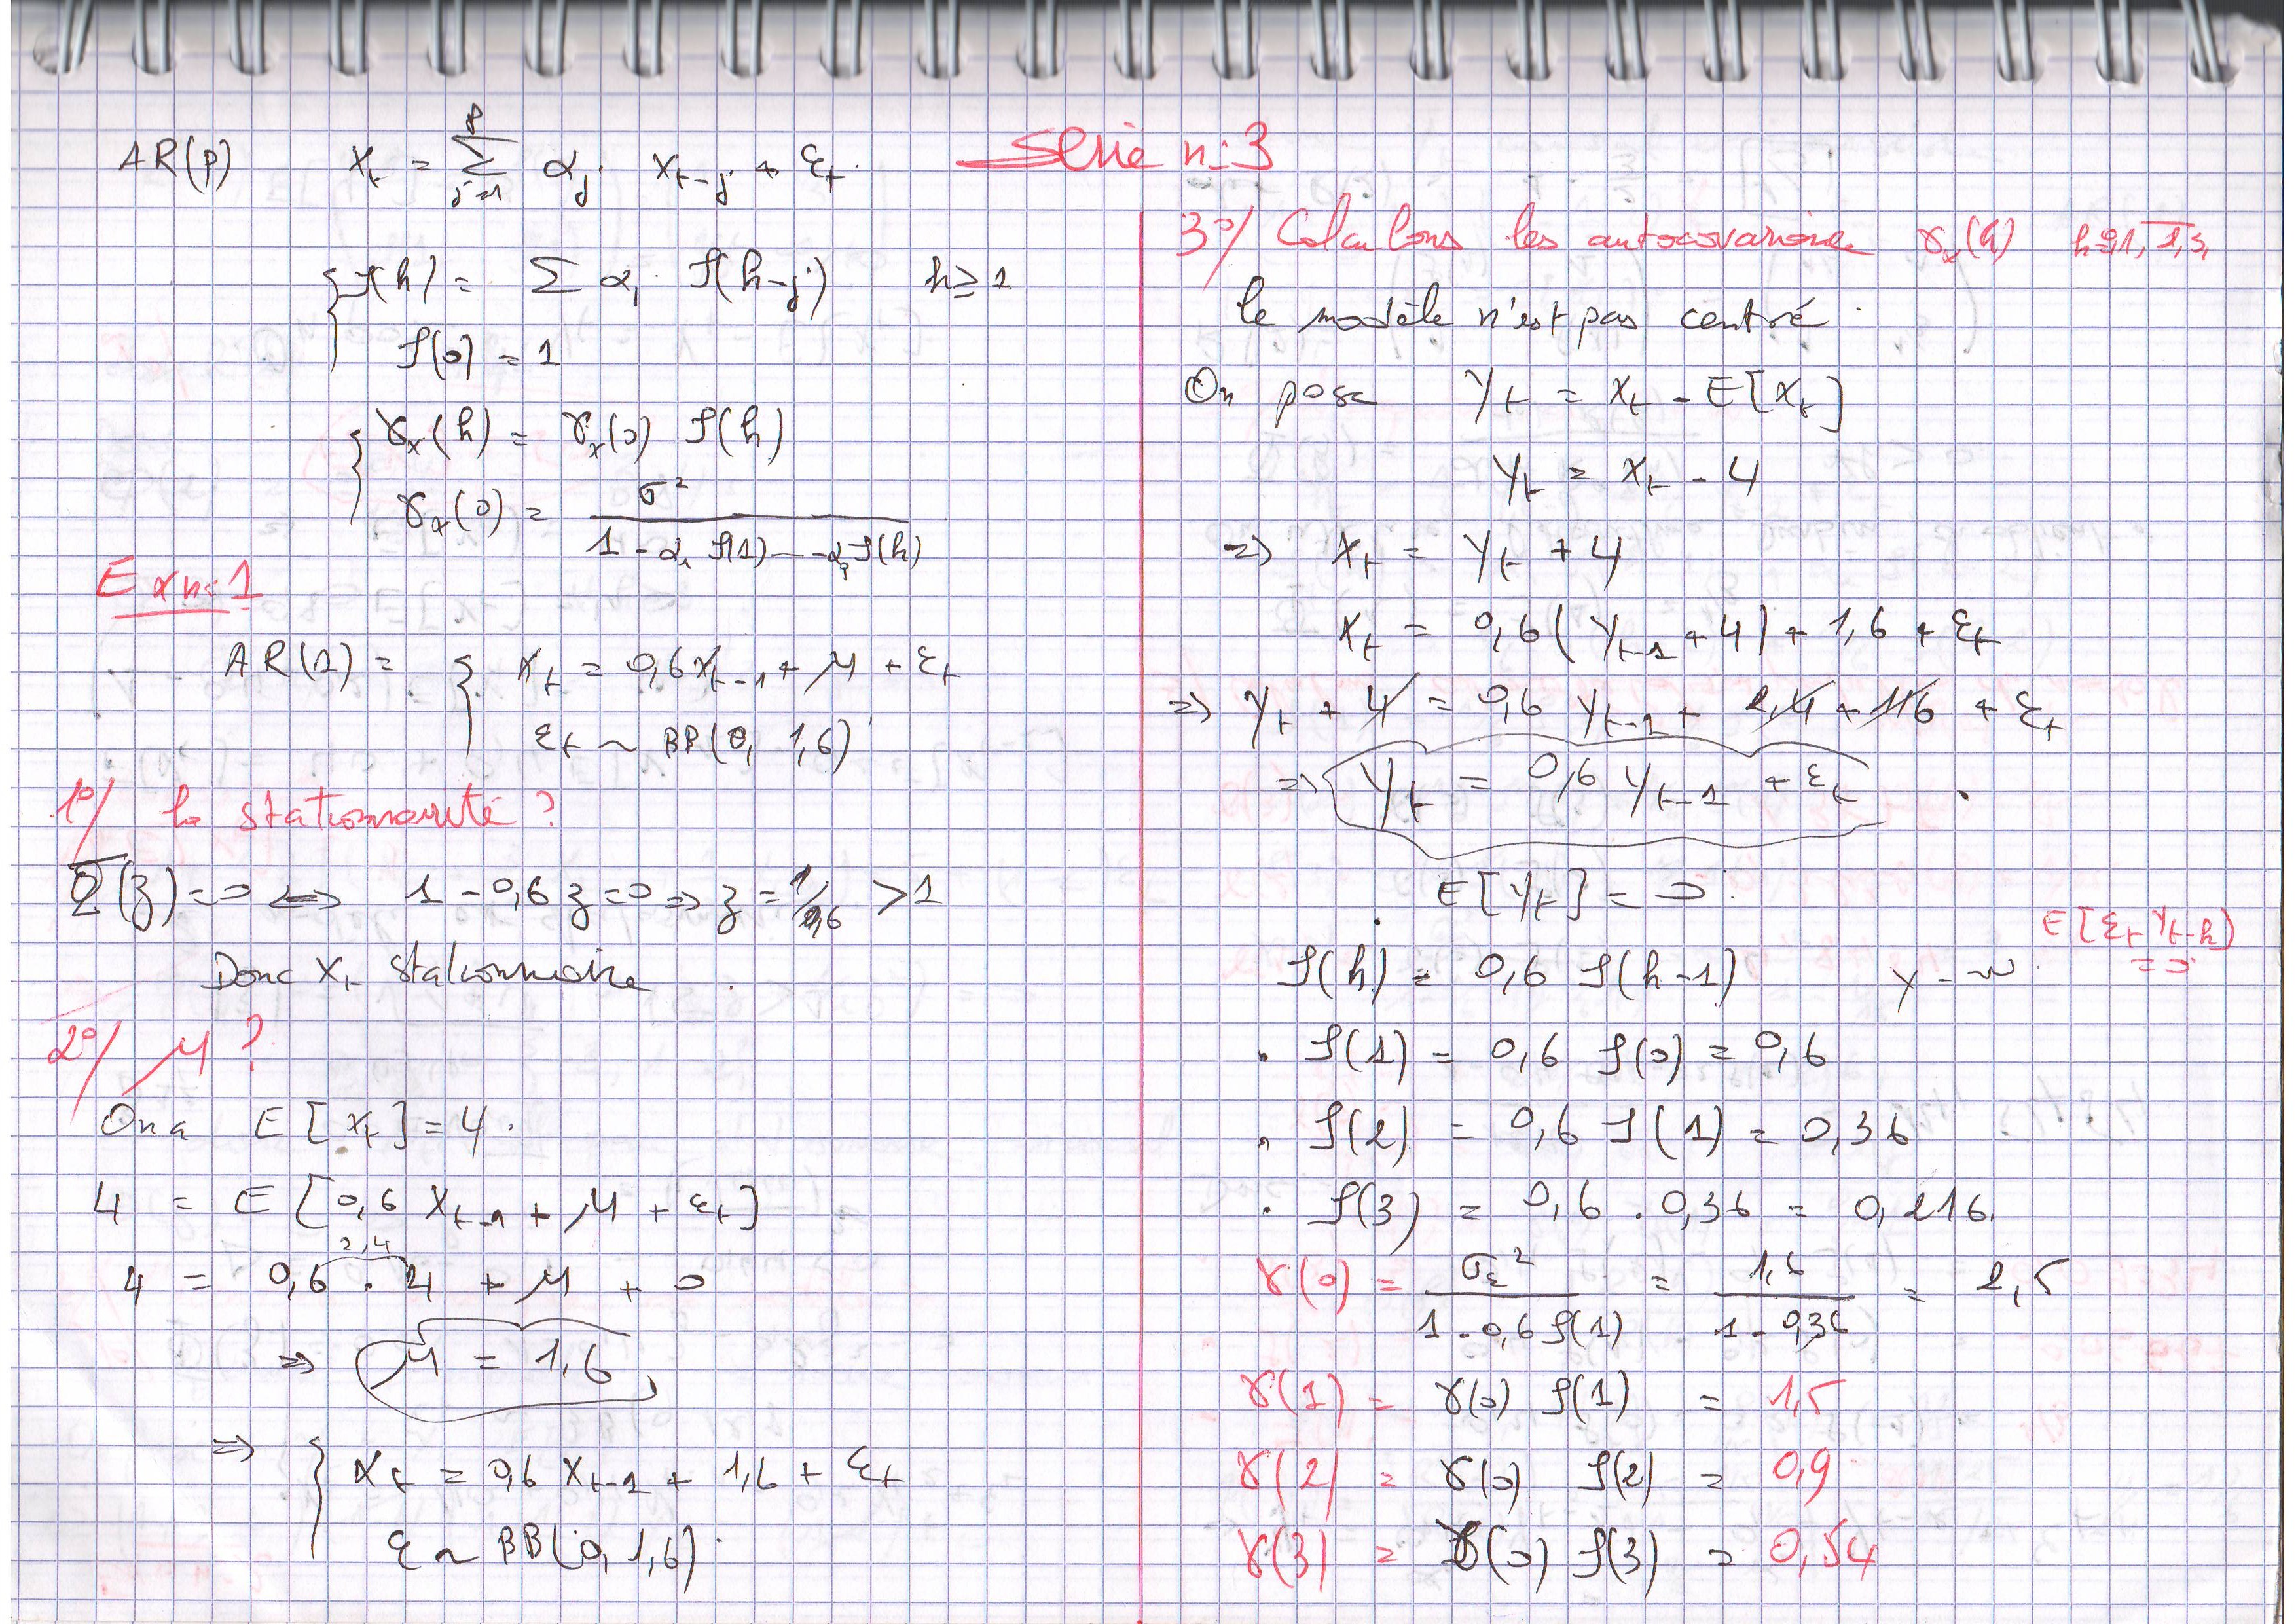 Série n=3
AR(p) X_t = Σ_{j=1}^{p} α_j X_{t-j} + ε_t
{ ρ(h) = Σ α_j ρ(h-j) h ≥ 1
ρ(0) = 1
{ γ_x(h) = γ_x(0) ρ(h)
γ_x(0) = σ² / (1 - α_1 ρ(1) - - - α_p ρ(h))
Ex n=1
AR(1) = { X_t = 0,6 X_{t-1} + μ + ε_t
ε_t ~ BB(0, 1,6)
1°/ la stationnarité ?
Φ(z) = 0 ⟺ 1 - 0,6 z = 0 ⇒ z = 1/0,6 > 1
Donc X_t stationnaire .
2°/ μ ?
On a E[X_t] = 4 .
4 = E[0,6 X_{t-1} + μ + ε_t]
2,4
4 = 0,6 . 4 + μ + 0
⇒ μ = 1,6
⇒ { X_t = 0,6 X_{t-1} + 1,6 + ε_t
ε ~ BB(0, 1,6) .
3°/ Calculons les autocovariance γ_x(h)
le modèle n'est pas centré .
On pose Y_t = X_t - E[X_t]
Y_t = X_t - 4
⇒ X_t = Y_t + 4
X_t = 0,6 (Y_{t-1} + 4) + 1,6 + ε_t
⇒ Y_t + 4 = 0,6 Y_{t-1} + 2,4 + 1,6 + ε_t
⇒ Y_t = 0,6 Y_{t-1} + ε_t .
. E[Y_t] = 0
E[ε_t Y_{t-h}] = 0
ρ(h) = 0,6 ρ(h-1) Y-W
. ρ(1) = 0,6 ρ(0) = 0,6
. ρ(2) = 0,6 ρ(1) = 0,36
. ρ(3) = 0,6 . 0,36 = 0,216.
γ(0) = σ_ε² / (1 - 0,6 ρ(1)) = 1,6 / (1 - 0,36) = 2,5
γ(1) = γ(0) ρ(1) = 1,5
γ(2) = γ(0) ρ(2) = 0,9
γ(3) = γ(0) ρ(3) = 0,54